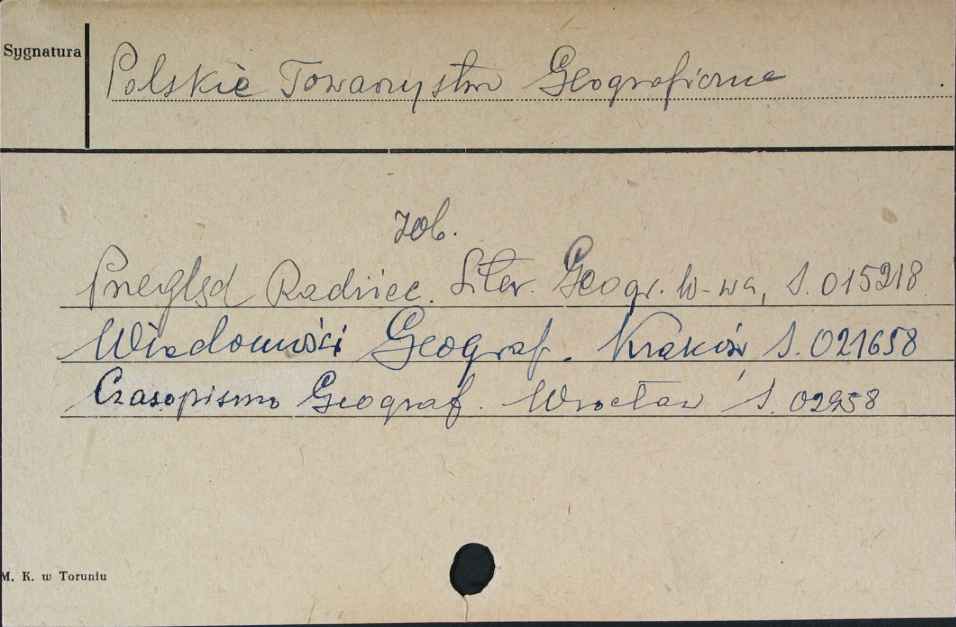 Sygnatura
Polskie Towarzystwo Geograficzne
zob.
Przegląd Radziec. Liter. Geogr. W-wa, S. 015218
Wiadomości Geograf. Kraków, S. 021658
Czasopismo Geograf. Wrocław, S. 02958
M. K. w Toruniu